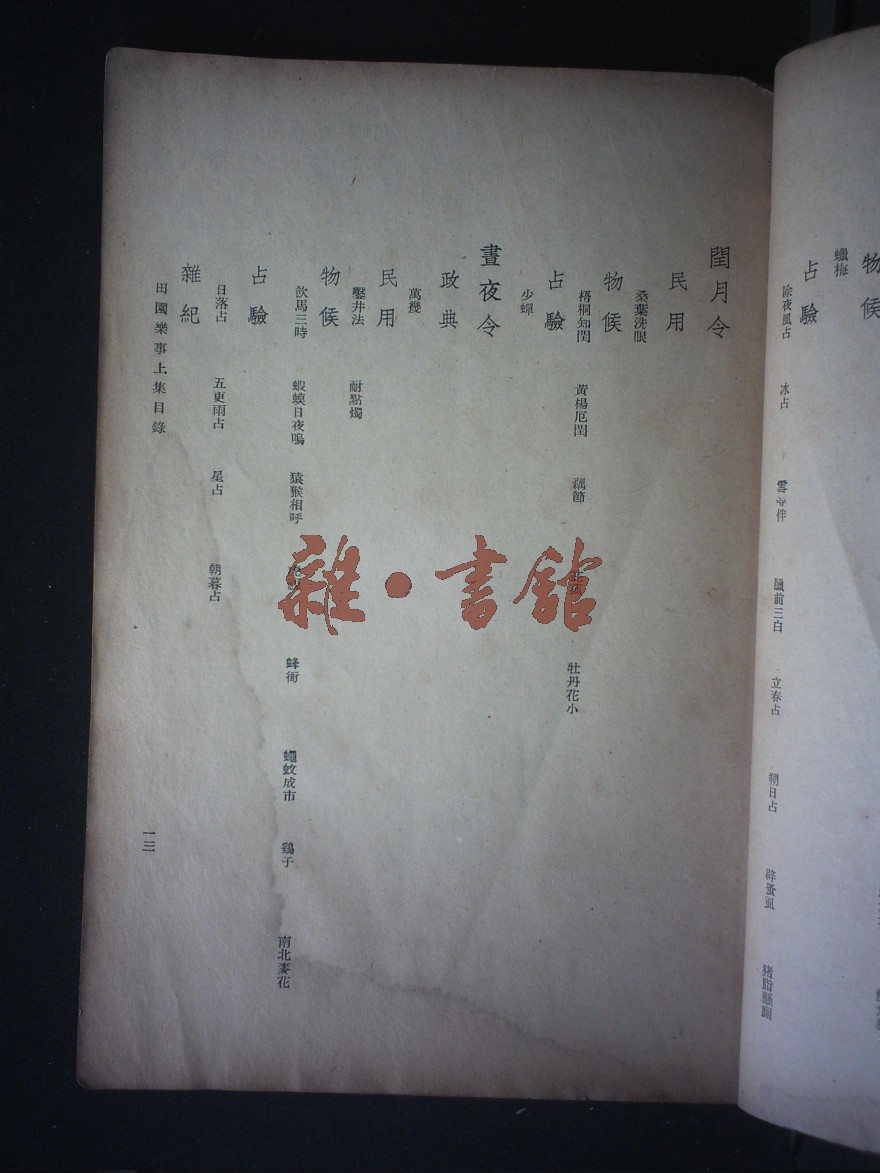 物候
蠟梅
占驗
除夜風占 冰占 雪 伴 臘前三白 立春占 朔日占 辟蚤虱
閏月令
民用
桑葉洗眼
物候
梧桐知閏 黃楊厄閏 藕節 牡丹花小
占驗
少蟬
晝夜令
政典
萬幾
民用
鑿井法 耐點燭
物候
飲馬三時 蝦蟆日夜鳴 猿猴相呼 蜂衙 蠅蚊成市 鷄子 南北麥花
占驗
日落占 五更雨占 星占 朝暮占
雜紀
田園樂事上集目錄
一三
雜·書館